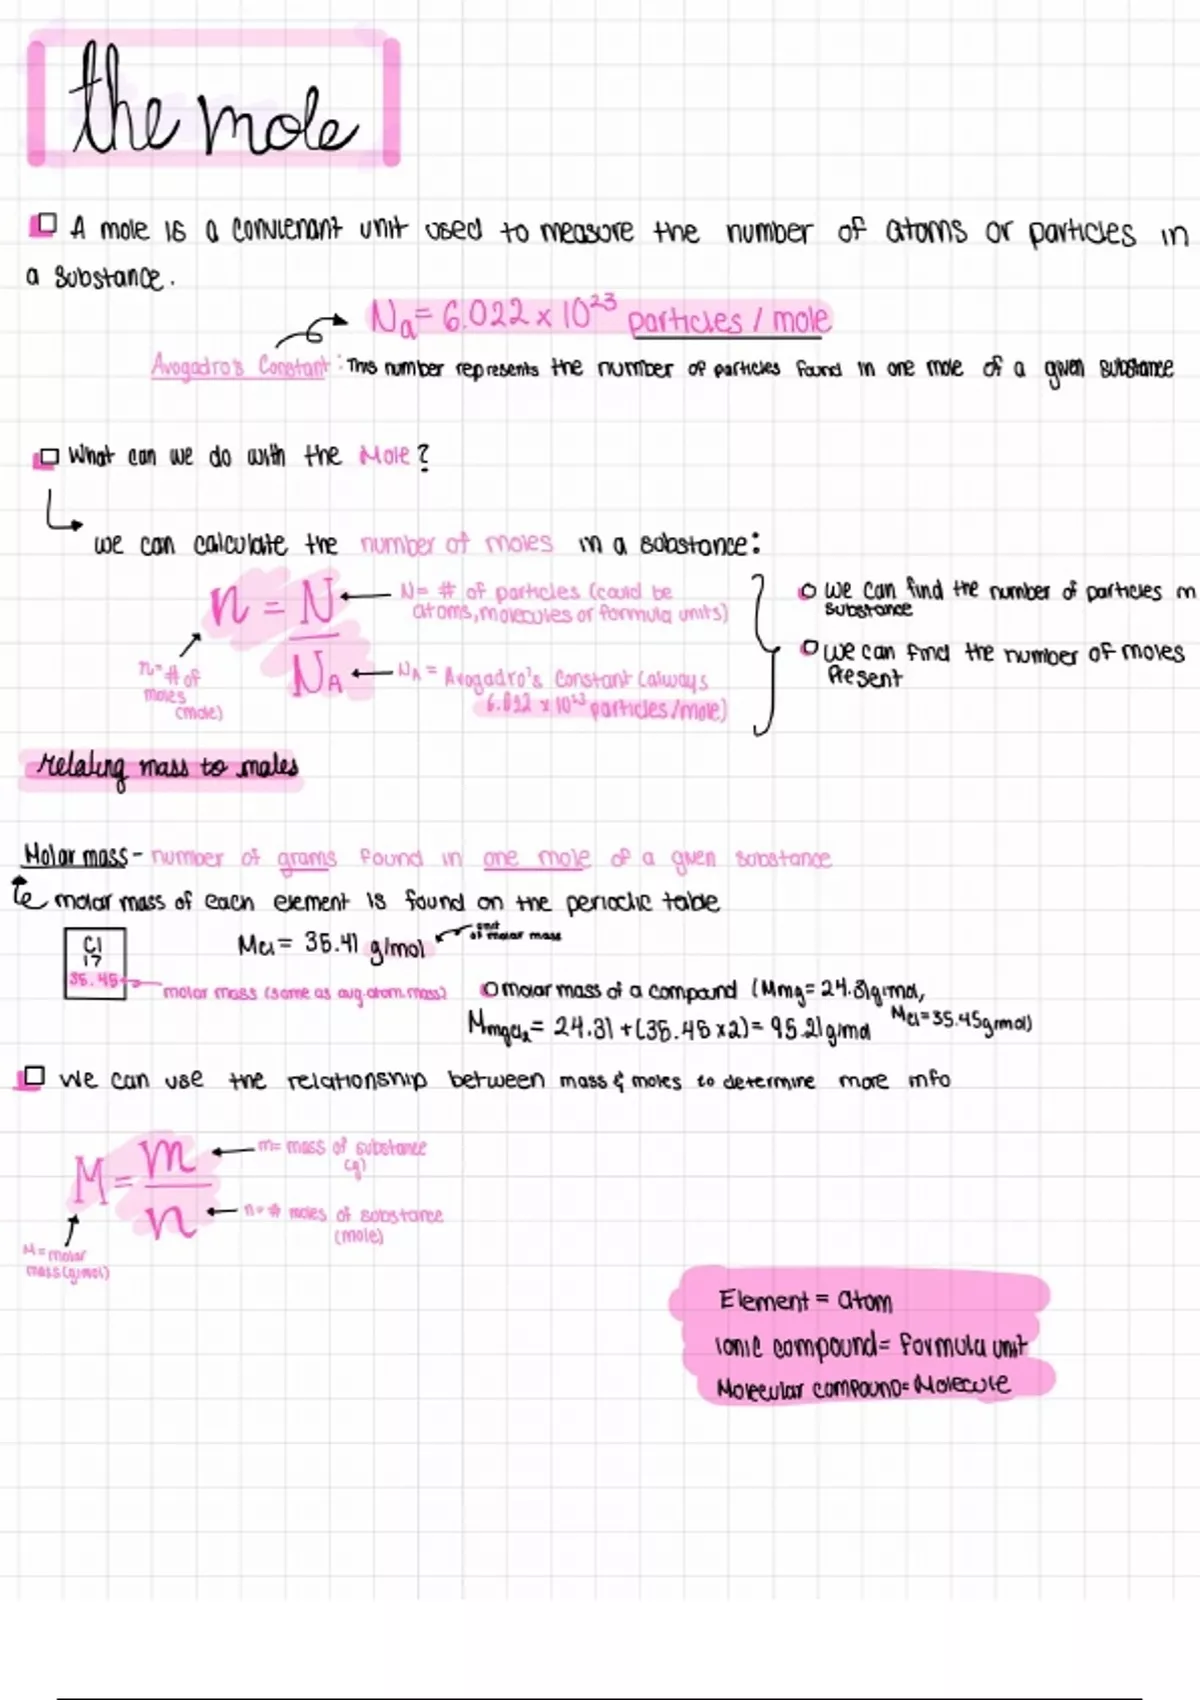 the mole
A mole is a convienant unit used to measure the number of atoms or particles in
a substance.
Na = 6.022 x 10²³ particles / mole
Avogadro's Constant : This number represents the number of particles found in one mole of a given substance
What can we do with the Mole?
we can calculate the number of moles in a substance:
n = N
NA
N= # of particles (could be
atoms, molecules or formula units)
n= # of
moles
(mole)
NA = Avogadro's Constant (always
6.022 x 10²³ particles/mole)
we can find the number of particles in
substance
we can find the number of moles
Present
relating mass to moles
Molar mass - number of grams found in one mole of a given substance
molar mass of each element is found on the periodic table
Cl
17
35.45
MCl = 35.41 g/mol
unit
of molar mass
molar mass (same as avg. atom. mass)
molar mass of a compound (Mmg= 24.31g/mol,
MCl=35.45g/mol)
MmgCl₂= 24.31 + (35.45 x2)= 95.21g/mol
we can use the relationship between mass & moles to determine more info
M = m
n
m= mass of substance
(g)
n= # moles of substance
(mole)
M= molar
mass (g/mol)
Element = atom
Ionic compound= formula unit
Molecular compound= Molecule